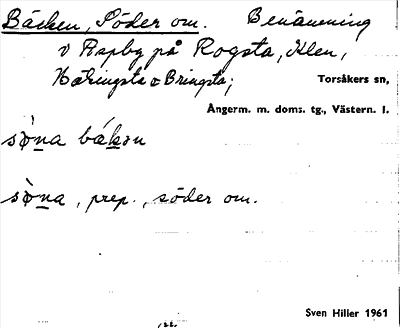 Bäcken, Söder om. Benämning
v Aspby på Rogsta, Klen,
Häringsta o Bringsta;
Torsåkers sn,
Ångerm. m. doms. tg., Västern. l.
sò̤na bákɔn
sò̤na, prep., söder om.
Sven Hiller 1961